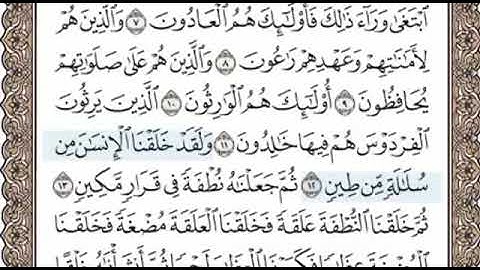 ٱبْتَغَىٰ وَرَآءَ ذَٰلِكَ فَأُو۟لَٰٓئِكَ هُمُ ٱلْعَادُونَ ٧ وَٱلَّذِينَ هُمْ
لِأَمَٰنَٰتِهِمْ وَعَهْدِهِمْ رَٰعُونَ ٨ وَٱلَّذِينَ هُمْ عَلَىٰ صَلَوَٰتِهِمْ
يُحَافِظُونَ ٩ أُو۟لَٰٓئِكَ هُمُ ٱلْوَٰرِثُونَ ١٠ ٱلَّذِينَ يَرِثُونَ
ٱلْفِرْدَوْسَ هُمْ فِيهَا خَٰلِدُونَ ١١ وَلَقَدْ خَلَقْنَا ٱلْإِنسَٰنَ مِن
سُلَٰلَةٍ مِّن طِينٍ ١٢ ثُمَّ جَعَلْنَٰهُ نُطْفَةً فِى قَرَارٍ مَّكِينٍ ١٣
ثُمَّ خَلَقْنَا ٱلنُّطْفَةَ عَلَقَةً فَخَلَقْنَا ٱلْعَلَقَةَ مُضْغَةً فَخَلَقْنَا